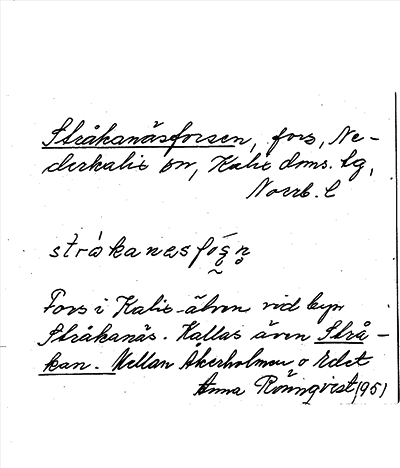 Stråkanäsforsen, fors, Ne-
derkalix sn, Kalix dms. lg,
Norrb. l
stråkanasfo̱s̥n̥
Fors i Kalix älven vid byn
Stråkanäs. Kallas även Strå-
kan. Mellan Åkerholmen o Edet
Anna Rönnqvist 1951